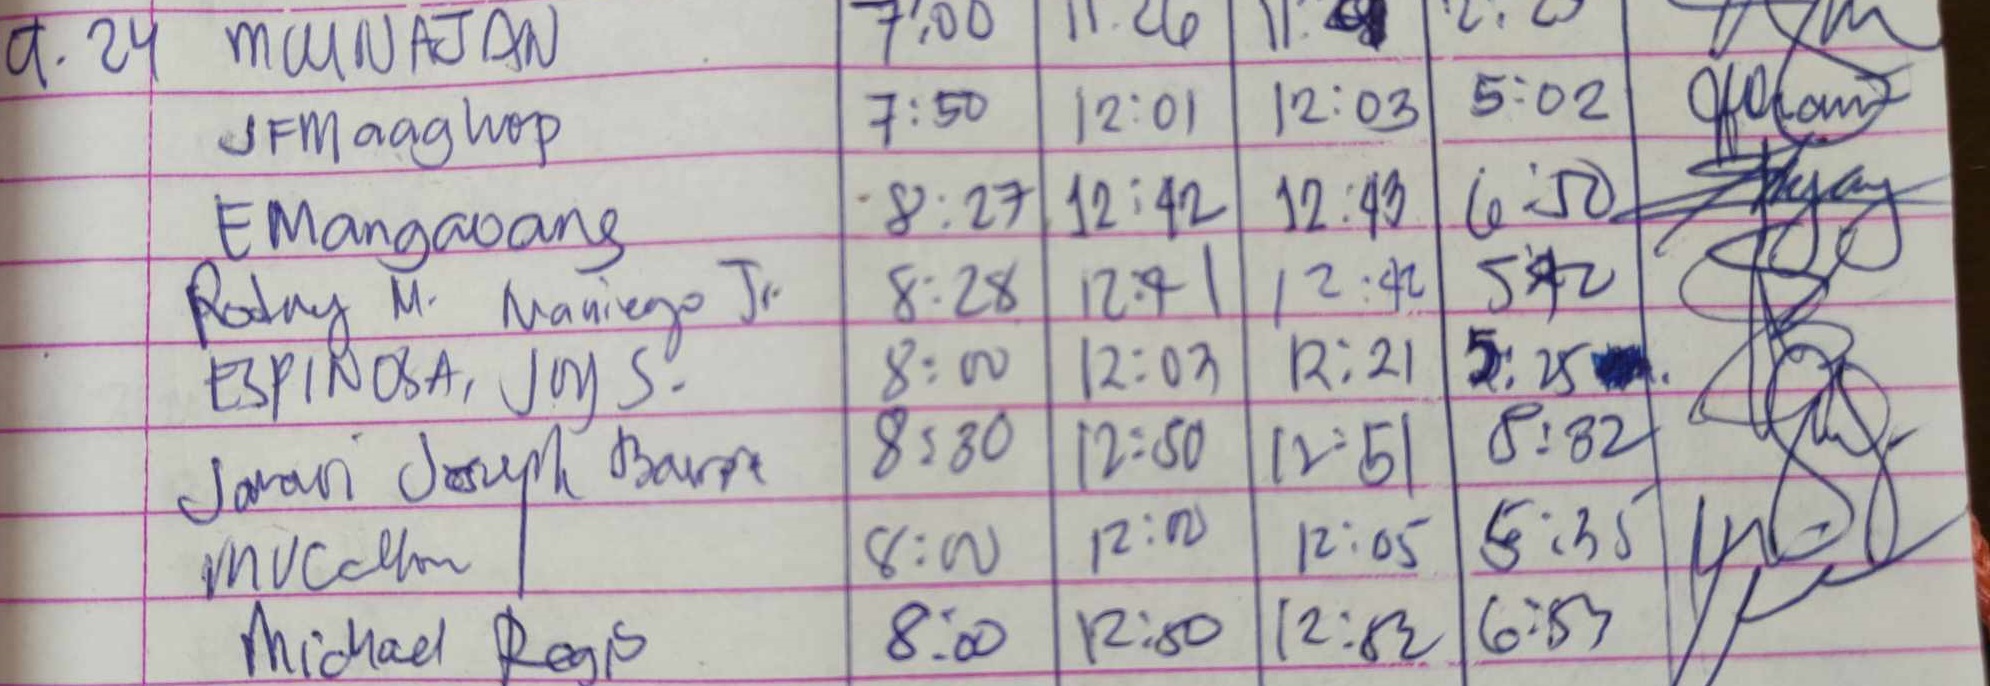 a. 24 MUNAJAN 7:00 11:26
JFMaaghop 7:50 12:01 12:03 5:02
EMangaoang 8:27 12:42 12:43 6:50
Rodny M. Maniego Jr. 8:28 12:41 12:42 5:42
ESPINOSA, JOY S. 8:00 12:03 12:21 5:25
Joseph 8:30 12:50 12:51 8:32
8:00 12:00 12:05 5:35
Michael Regis 8:00 12:50 12:52 6:53